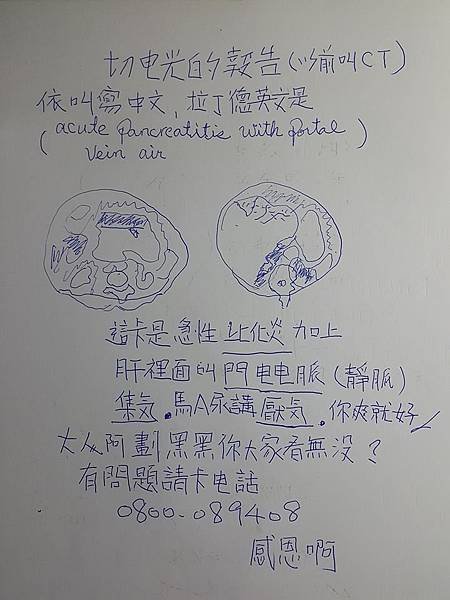 切电光的報告(以前叫CT)
依叫寫中文,拉丁德英文是
(acute pancreatitis with portal vein air)
這卡是急性 化炎 加上
肝裡面的門 脈(靜脈)
集気.馬A永講厭気.你爽就好
大人阿劃黑黑你大家看無沒?
有問題請卡电話
0800-089408
感恩啊